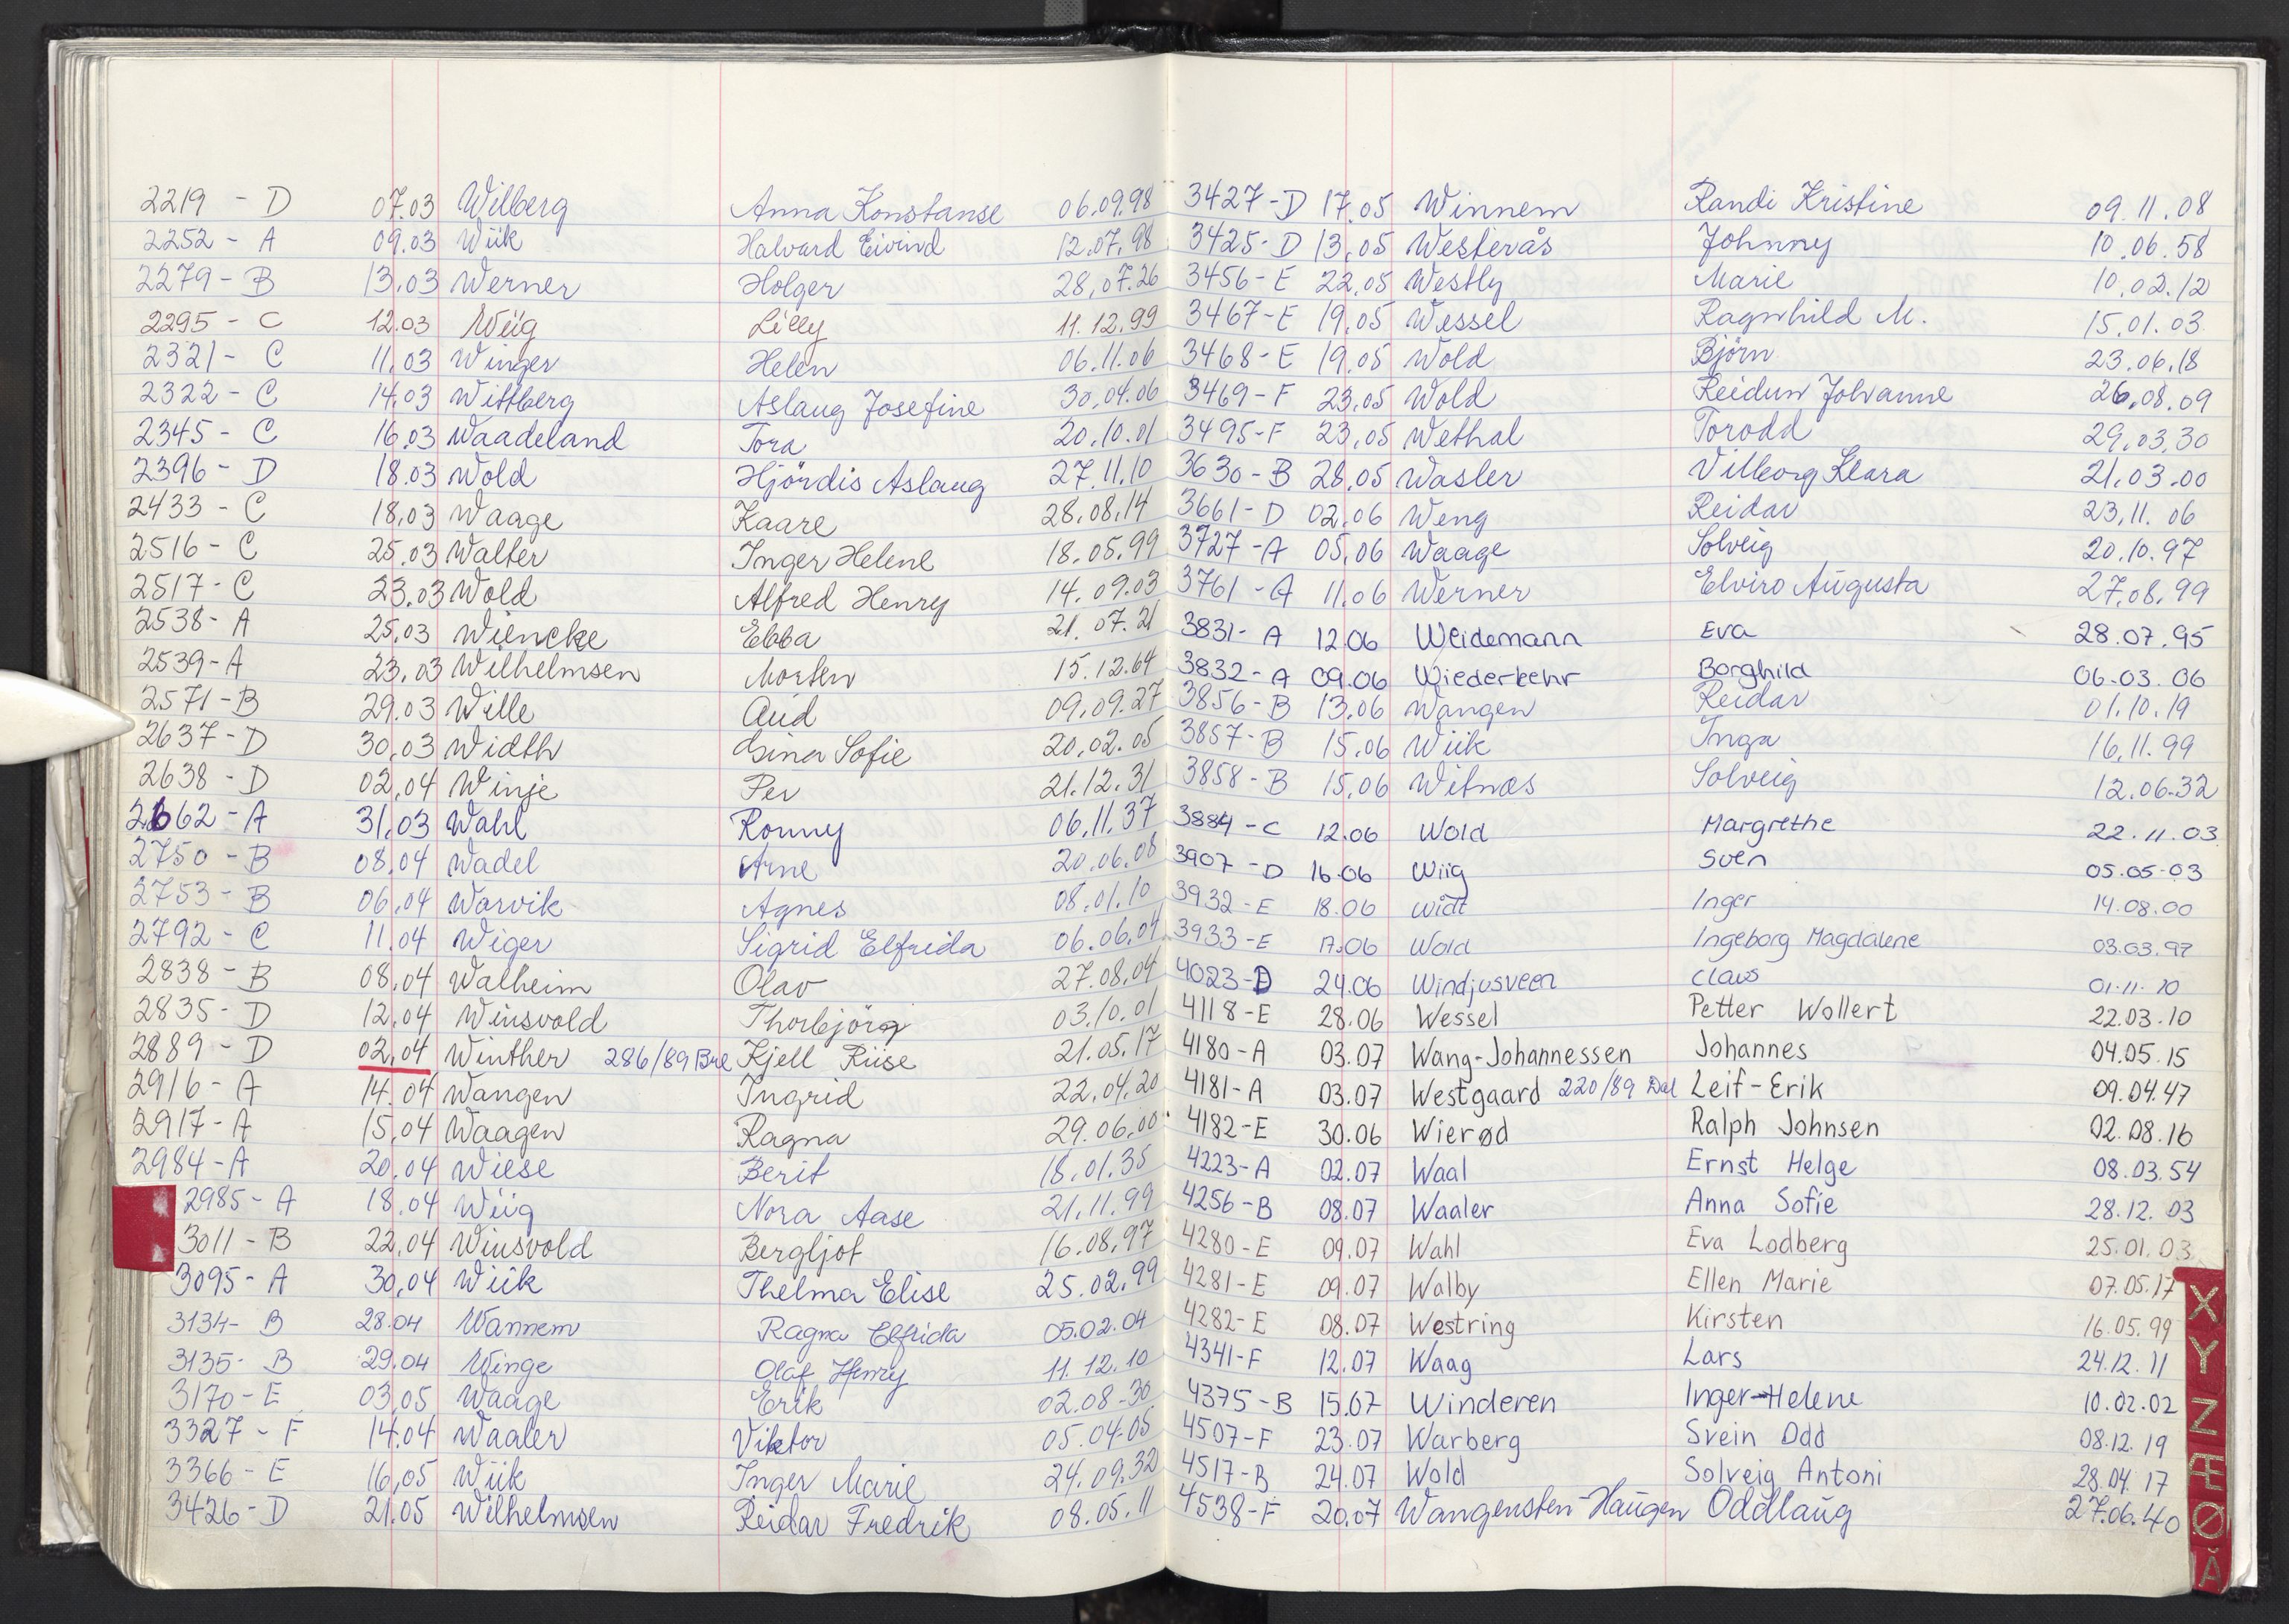 2219 - D 07.03 Wilberg Anna Konstanse 06.09.98
2252 - A 09.03 Wiik Halvard Eivind 12.07.98
2279 - B 13.03 Werner Holger 28.07.26
2295 - C 12.03 Wiig Lilly 11.12.99
2321 - C 11.03 Winger Helen 06.11.06
2322 - C 14.03 Wittberg Aslaug Josefine 30.04.06
2345 - C 16.03 Waadeland Tora 20.10.01
2396 - D 18.03 Wold Hjördis Aslaug 27.11.10
2433 - C 18.03 Waage Kaare 28.08.14
2516 - C 25.03 Walter Inger Helene 18.05.99
2517 - C 23.03 Wold Alfred Henry 14.09.03
2538 - A 25.03 Wiencke Ebba 21.07.21
2539 - A 23.03 Wilhelmsen Morten 15.12.64
2571 - B 29.03 Wille Aud 09.09.27
2637 - D 30.03 Width Gina Sofie 20.02.05
2638 - D 02.04 Winje Per 21.12.31
2662 - A 31.03 Wahl Ronny 06.11.37
2750 - B 08.04 Wadel Arne 20.06.08
2753 - B 06.04 Warvik Agnes 08.01.10
2792 - C 11.04 Wiger Sigrid Elfrida 06.06.04
2838 - B 08.04 Walheim Olav 27.08.04
2835 - D 12.04 Winsvold Thorbjörg 03.10.01
2889 - D 02.04 Winther 286/89 Bre Kjell Riise 21.05.17
2916 - A 14.04 Wangen Ingrid 22.04.20
2917 - A 15.04 Waagen Ragna 29.06.00
2984 - A 20.04 Wiese Berit 18.01.35
2985 - A 18.04 Wiig Nora Aase 21.11.99
3011 - B 22.04 Winsvold Bergljot 16.08.97
3095 - A 30.04 Wiik Thelma Elise 25.02.99
3134 - B 28.04 Wannem Ragna Elfrida 05.02.04
3135 - B 29.04 Winge Olaf Henry 11.12.10
3170 - E 03.05 Waage Erik 02.08-30
3327 - F 14.04 Waaler Viktor 05.04.05
3366 - E 16.05 Wiik Inger Marie 24.09.32
3426 - D 21.05 Wilhelmsen Reidar Fredrik 08.05.11
3427 - D 17.05 Winnem Randi Kristine 09.11.08
3425 - D 13.05 Westerås Johnny 10.06.58
3456 - E 22.05 Westly Marie 10.02.12
3467 - E 19.05 Wessel Ragnhild M. 15.01.03
3468 - E 19.05 Wold Björn 23.06.18
3469 - F 23.05 Wold Reidun Johanne 26.08.09
3495 - F 23.05 Wethal Torodd 29.03.30
3630 - B 28.05 Wasler Vilborg Klara 21.03.00
3661 - D 02.06 Weng Reidar 23.11.06
3727 - A 05.06 Waage Solveig 20.10.97
3761 - A 11.06 Werner Elviro Augusta 27.08.99
3831 - A 12.06 Weidemann Eva 28.07.95
3832 - A 09.06 Wiederkehr Borghild 06.03.06
3856 - B 13.06 Wangen Reidar 01.10.19
3857 - B 15.06 Wiik Inga 16.11.99
3858 - B 15.06 Witnæs Solveig 12.06.32
3884 - C 12.06 Wold Margrethe 22.11.03
3907 - D 16.06 Wiig Sven 05.05-03
3932 - E 18.06 Widt Inger 14.08.00
3933 - E 17.06 Wold Ingeborg Magdalene 03.03.97
4023 - D 24.06 Windjusveen Claus 01.11.10
4118 - E 28.06 Wessel Petter Wollert 22.03.10
4180 - A 03.07 Wang-Johannessen Johannes 04.05.15
4181 - A 03.07 Westgaard 220/89 Dal Leif-Erik 09.04.47
4182 - E 30.06 Wierød Ralph Johnsen 02.08.16
4223 - A 02.07 Waal Ernst Helge 08.03.54
4256 - B 08.07 Waaler Anna Sofie 28.12.03
4280 - E 09.07 Wahl Eva Lodberg 25.01.03
4281 - E 09.07 Walby Ellen Marie 07.05.17
4282 - E 08.07 Westring Kirsten 16.05.99
4341 - F 12.07 Waag Lars 24.12.11
4375 - B 15.07 Winderen Inger-Helene 10.02.02
4507 - F 23.07 Warberg Svein Odd 08.12.19
4517 - B 24.07 Wold Solveig Antoni 28.04.17
4538 - F 20.07 Wangensten-Haugen Oddlaug 27.06.40
X
Y
Z
Æ
Ø
Å